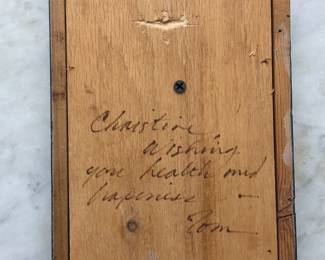 Christine
Wishing
you health and
happiness —
Tom